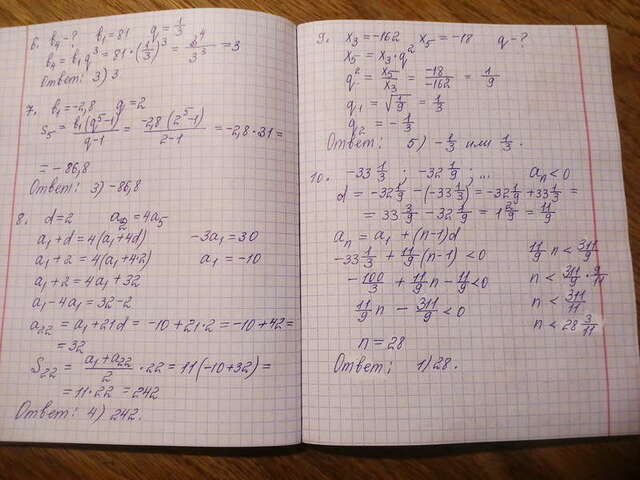 6. b₄-? b₁=81 q=1/3
b₄=b₁q³=81·(1/3)³=3⁴/3³=3
Ответ: 3) 3
7. b₁=-2,8 q=2
S₅=b₁(q⁵-1)/(q-1)=-2,8(2⁵-1)/(2-1)=-2,8·31=
=-86,8
Ответ: 3) -86,8
8. d=2 a₂=4a₅
a₁+d=4(a₁+4d) -3a₁=30
a₁+2=4(a₁+4·2) a₁=-10
a₁+2=4a₁+32
a₁-4a₁=32-2
a₂₂=a₁+21d=-10+21·2=-10+42=
=32
S₂₂=(a₁+a₂₂)/2·22=11(-10+32)=
=11·22=242
Ответ: 4) 242.
9. x₃=-162 x₅=-18 q-?
x₅=x₃·q²
q²=x₅/x₃=-18/-162=1/9
q₁=√(1/9)=1/3
q₂=-1/3
Ответ: 5) -1/3 или 1/3.
10. -33 1/3; -32 1/9; ... aₙ<0
d=-32 1/9-(-33 1/3)=-32 1/9+33 1/3=
=33 3/9-32 1/9=1 2/9=11/9
aₙ=a₁+(n-1)d
-33 1/3+11/9(n-1)<0 11/9n<311/9
-100/3+11/9n-11/9<0 n<311/9·9/11
11/9n-311/9<0 n<311/11
n=28 n<28 3/11
Ответ: 1) 28.